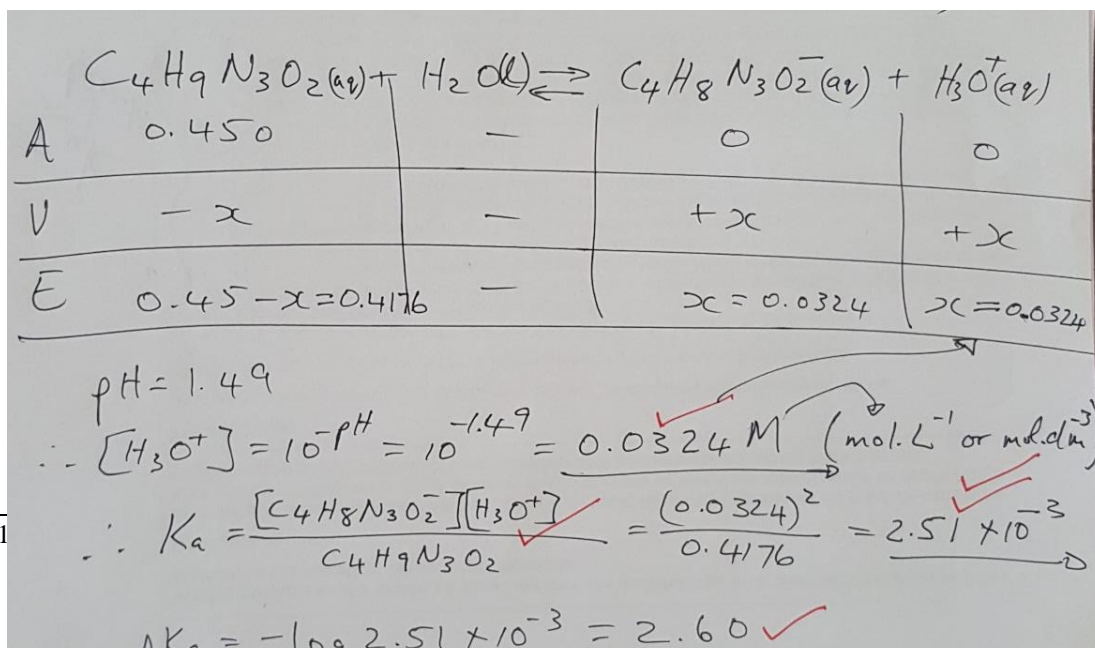 C₄H₉N₃O₂(aq) + H₂O(l) ⇌ C₄H₈N₃O₂⁻(aq) + H₃O⁺(aq)
A 0.450 — 0 0
V - x — + x + x
E 0.45 - x = 0.4176 — x = 0.0324 x = 0.0324
pH = 1.49
∴ [H₃O⁺] = 10^-pH = 10^-1.49 = 0.0324 M (mol.L⁻¹ or mol.dm⁻³)
∴ Ka = [C₄H₈N₃O₂⁻][H₃O⁺] / C₄H₉N₃O₂ = (0.0324)² / 0.4176 = 2.51 × 10⁻³
1
pKa = -log 2.51 × 10⁻³ = 2.60